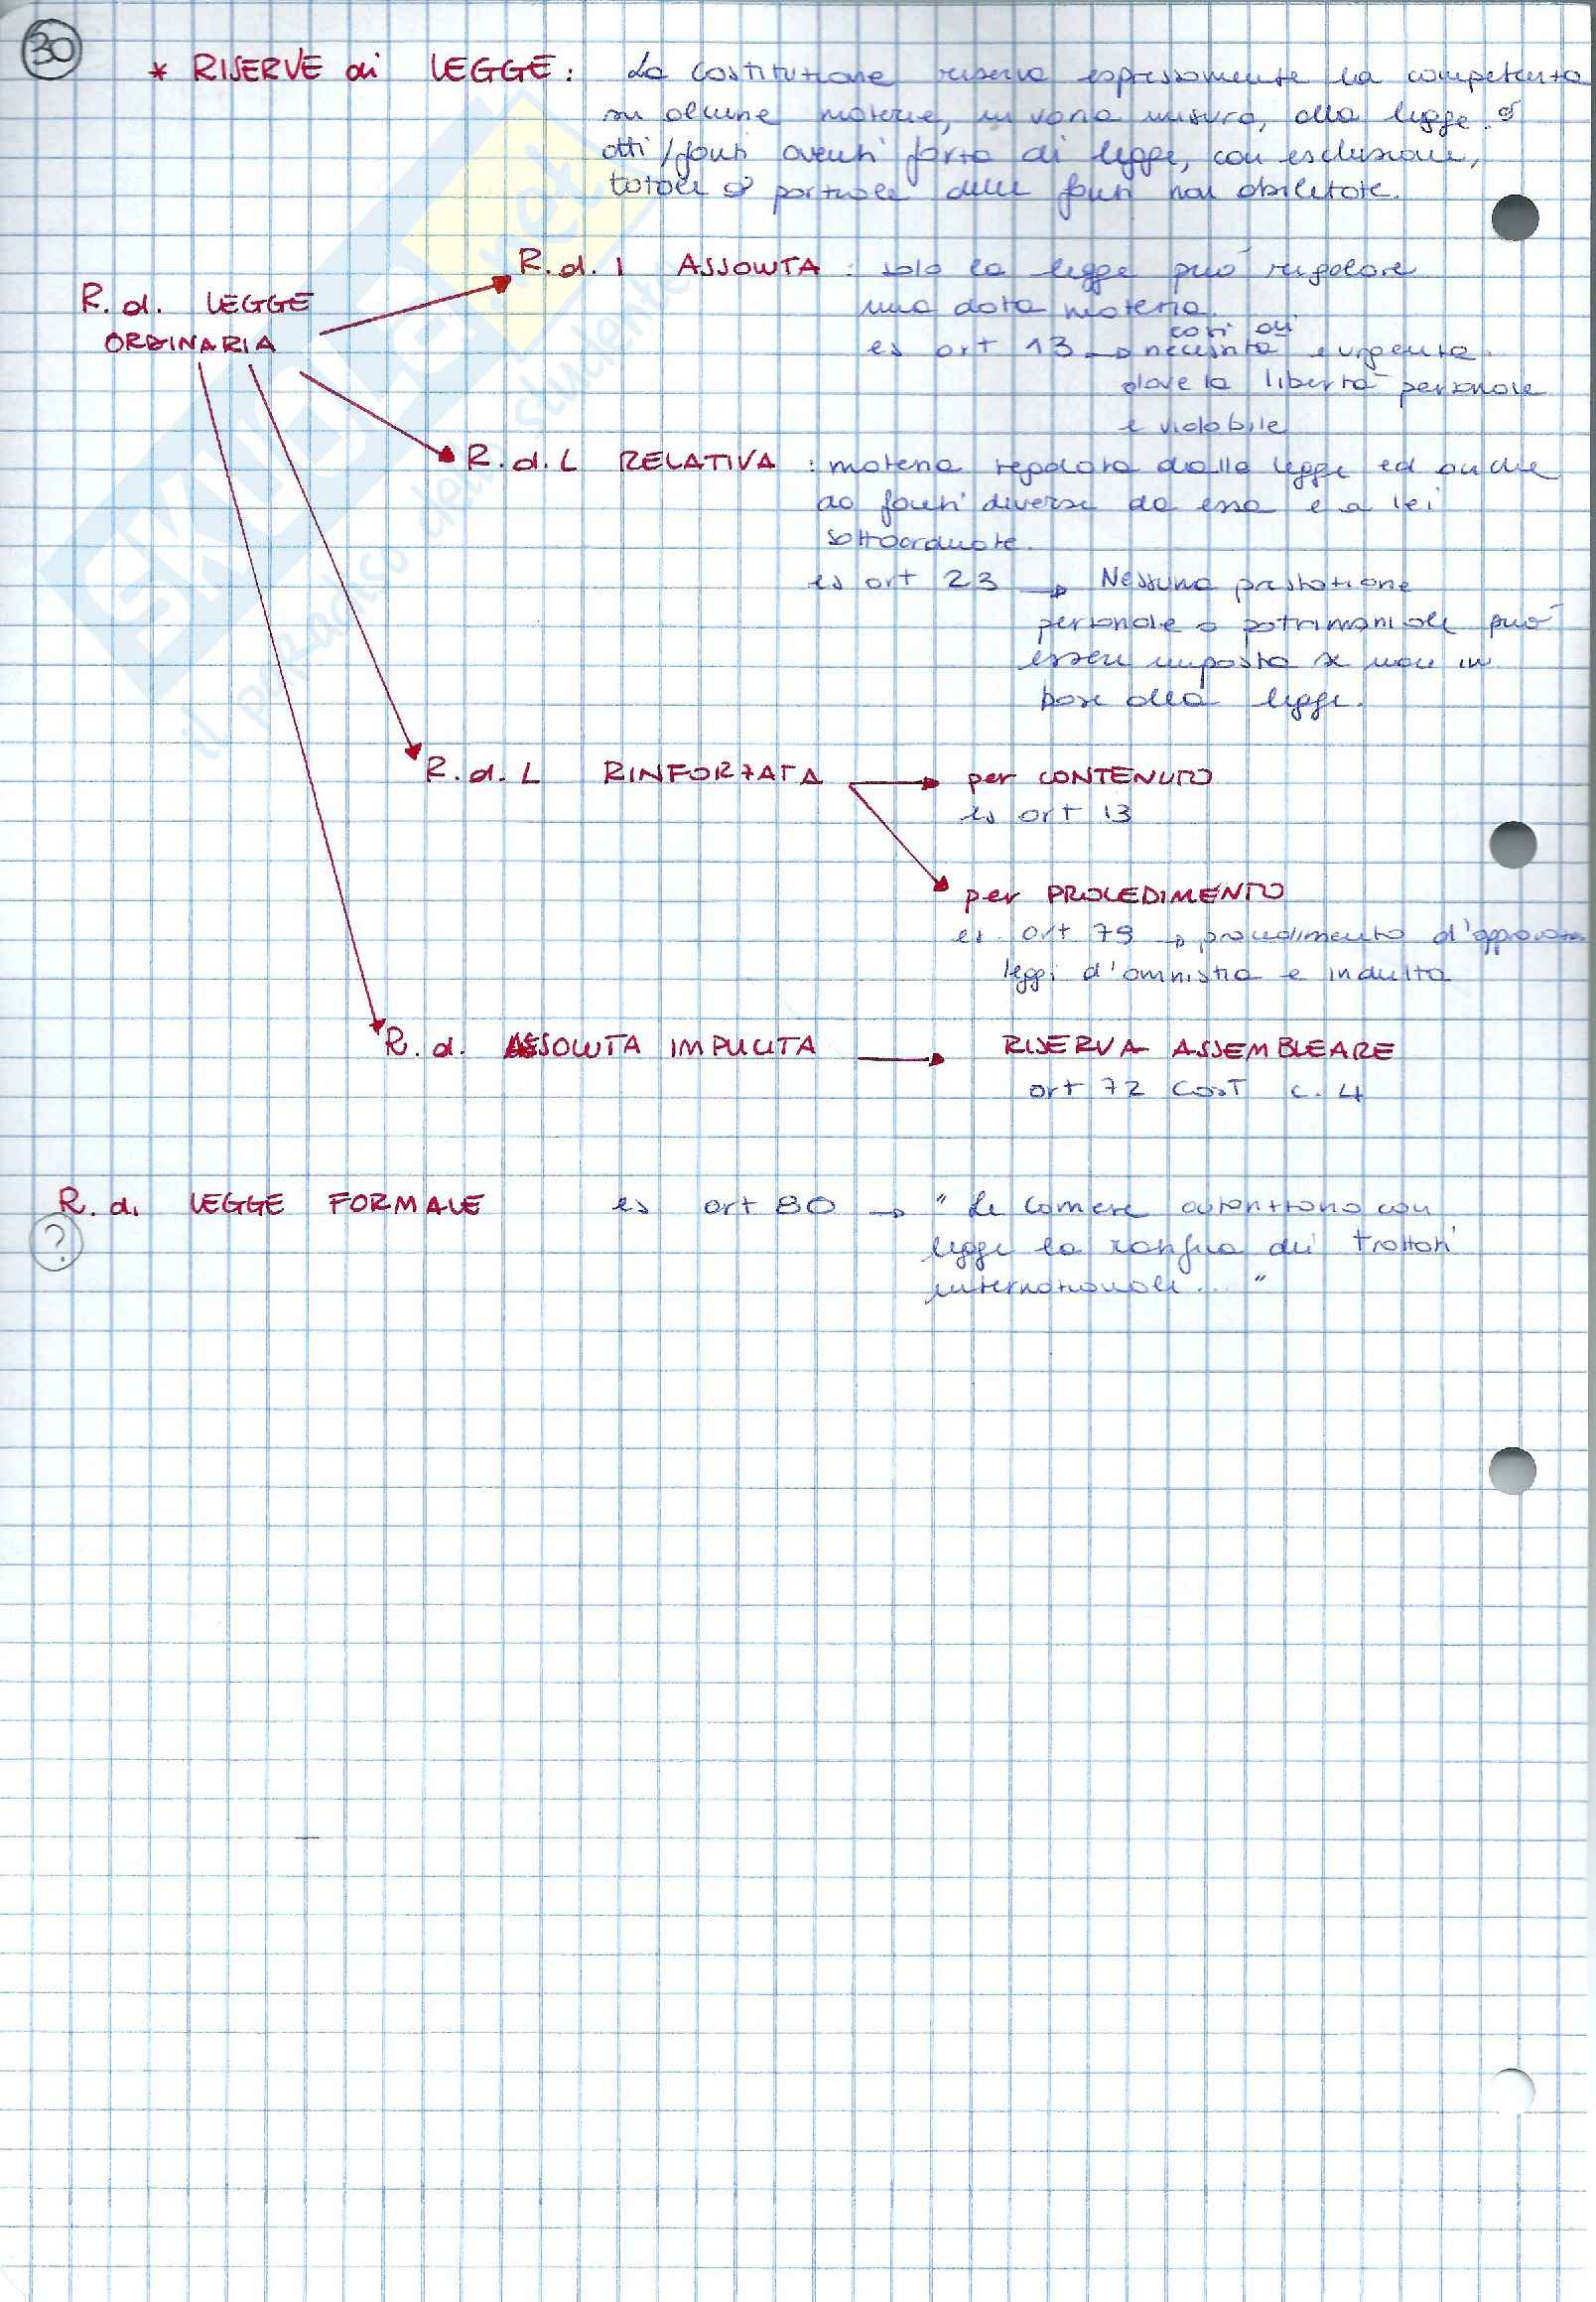 30
* RISERVE di LEGGE: La costituzione riserva espressamente la competenza
su alcune materie, in varia misura, alla legge o
atti/fonti aventi forza di legge, con esclusione,
totale o parziale delle fonti non abilitate.
R.d.l ASSOLUTA : solo la legge può regolare
una data materia.
R.d. LEGGE
ORDINARIA
es art 13 → casi di necessità e urgenza
dove la libertà personale
è violabile
R.d.L RELATIVA : materia regolata dalla legge ed anche
da fonti diverse da essa e a lei
sottoordinate.
es art 23 → Nessuna prestazione
personale o patrimoniale può
essere imposta se non in
base alla legge.
R.d.L RINFORZATA → per CONTENUTO
es art 13
per PROCEDIMENTO
es. art 79 → procedimento d'approvaz
leggi d'amnistia e indulto
R.d. ASSOLUTA IMPLICITA → RISERVA ASSEMBLEARE
art 72 Cost c. 4
R.d. LEGGE FORMALE es art 80 → "Le camere autorizzano con
?
legge la ratifica dei trattati
internazionali... "
SKUOLA.net
il paradiso dello studente